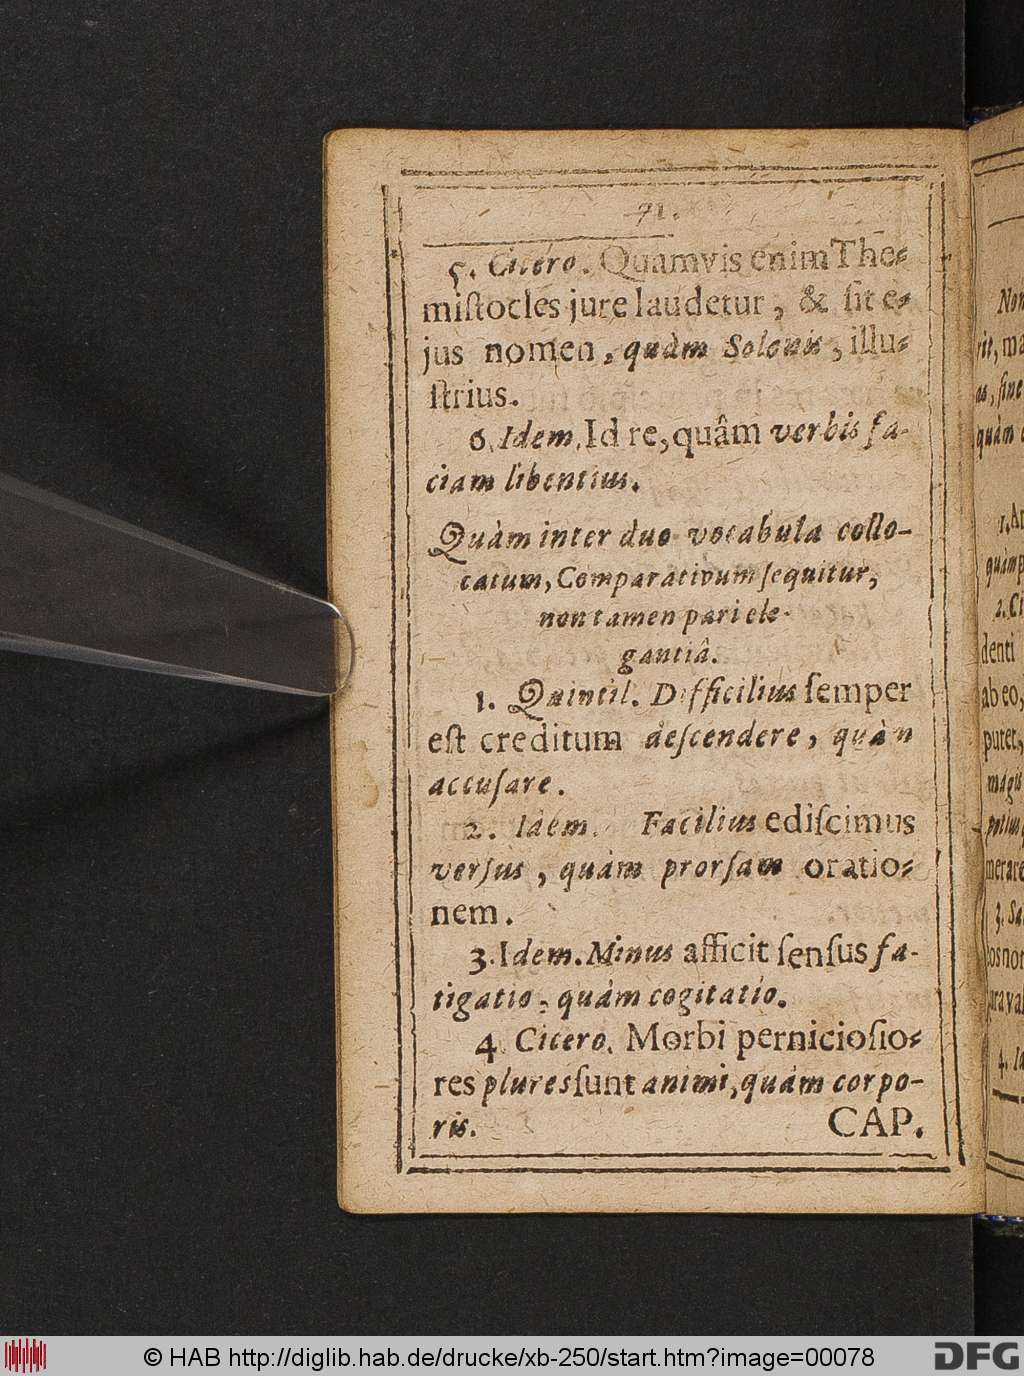 71.
5. Cicero. Quamvis enim The⸗
miſtocles jure laudetur, & ſit e⸗
jus nomen, quàm Solonis, illu⸗
ſtrius.
6. Idem. Id re, quâm verbis fa-
ciam libentius.
Quàm inter duo vocabula collo-
catum, Comparativum ſequitur,
non tamen pari ele-
gantiâ.
1. Quintil. Difficilius ſemper
eſt creditum deſcendere, quàm
accuſare.
2. Idem. Facilius ediſcimus
verſus, quàm prorſam oratio⸗
nem.
3. Idem. Minus afficit ſenſus fa-
tigatio, quàm cogitatio.
4. Cicero. Morbi pernicioſio⸗
res plures ſunt animi, quàm corpo-
ris. CAP.
Non
rit, ma
as, ſine
quàm
1. An
quàm p
2. Ci
denti
ab eo,
putet,
magis
potius
merare
3. Sa
los non
para val
4. Id
© HAB http://diglib.hab.de/drucke/xb-250/start.htm?image=00078
DFG